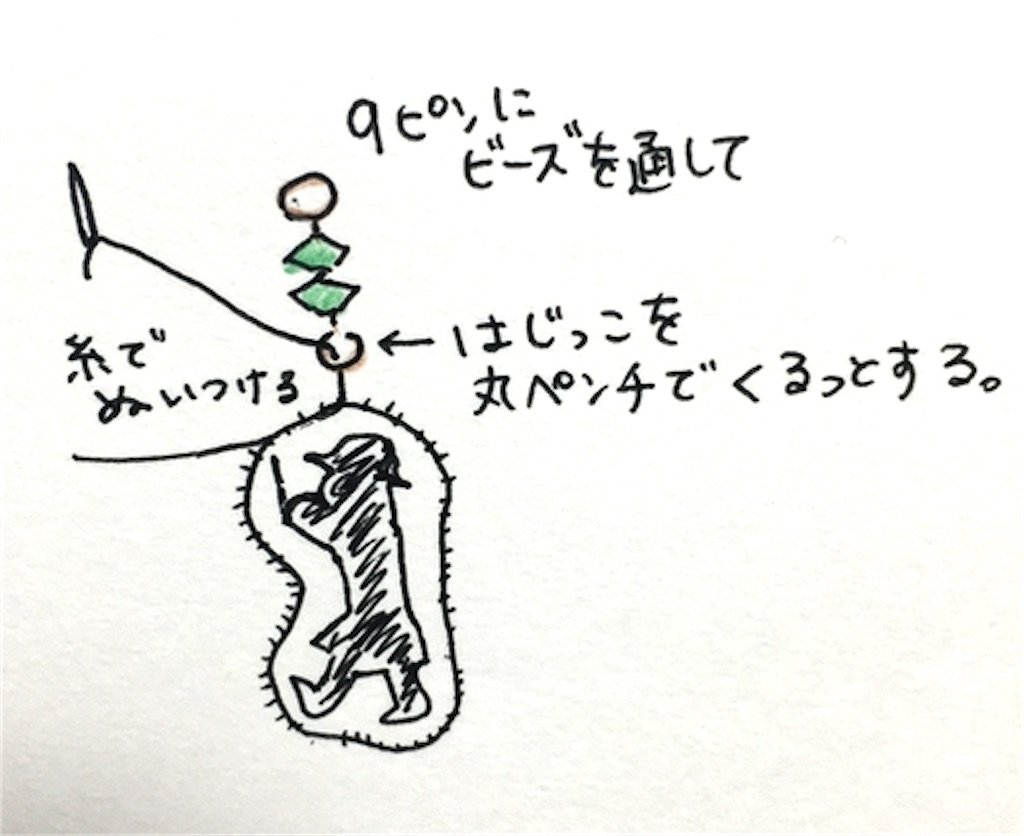 9ピンに
ビーズを通して
はじっこを
丸ペンチでくるっとする。
糸で
ぬいつける